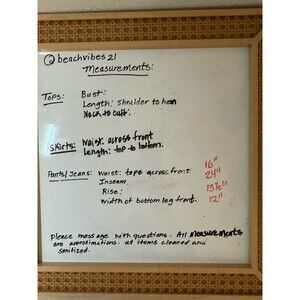 @beachvibes21
Measurements:
Tops: Bust:
Length: Shoulder to hem
Neck to cuff:
Skirts: Waist: across front
Length: top to bottom.
Pants/Jeans: Waist: tape across front 16"
Inseam 24"
Rise: 13½"
Width of bottom leg front. 12"
Please message with questions. All measurements
are approximations. all items cleaned and
sanitized.